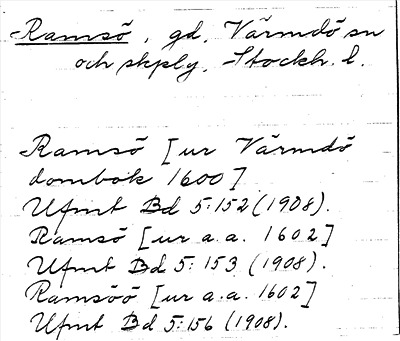 Ramsö, gd, Värmdö sn
och skplg, Stockh. l.
Ramsö [ur Värmdö
dombok 1600]
Ufmt Bd 5:152 (1908).
Ramsö [ur a.a. 1602]
Ufmt Bd 5:153 (1908).
Ramsöö [ur a.a. 1602]
Ufmt Bd 5:156 (1908).